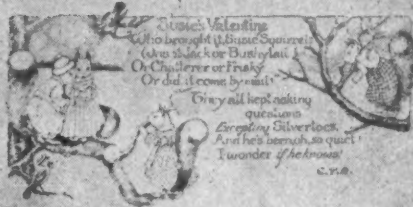 Susie's Valentine
Who brought it, Susie Squirrel?
Was it Jack or Bushytail?
Or Chatterer or Frisky
Or did it come by mail?
They all kept asking
questions
Excepting Silverlocks,
And he's been oh, so quiet
I wonder if he knows!